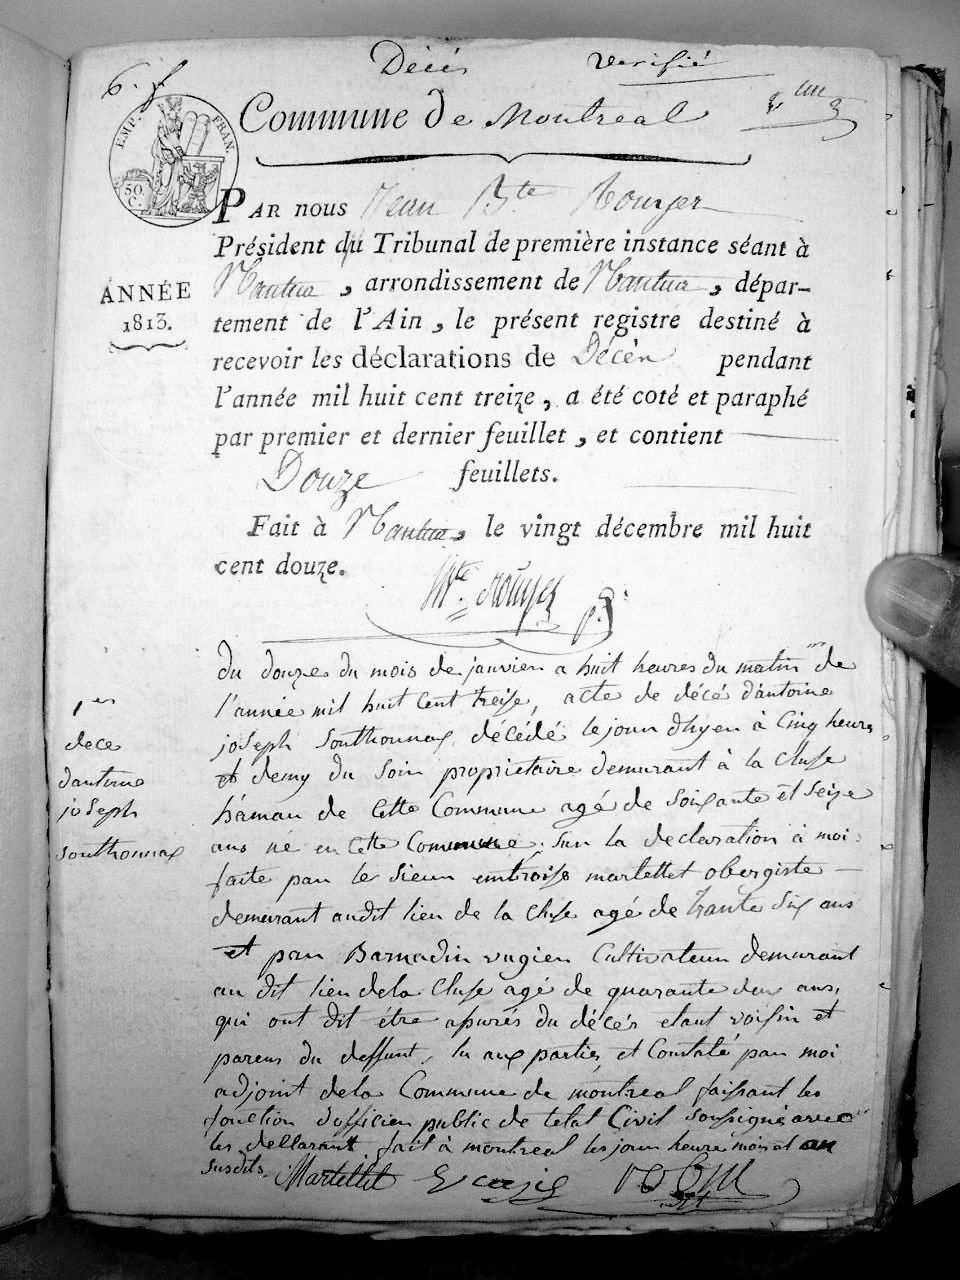 6. f
Décès vérifié
Commune de Montreal
EMP. FRAN.
50 C.
PAR nous Jean Bte Rouyer
Président du Tribunal de première instance séant à
Nantua, arrondissement de Nantua, dépar-
ANNÉE
1813.
tement de l'Ain, le présent registre destiné à
recevoir les déclarations de Décès pendant
l'année mil huit cent treize, a été coté et paraphé
par premier et dernier feuillet, et contient
Douze feuillets.
Fait à Nantua, le vingt décembre mil huit
cent douze.
Bte Rouyer
1er
dece
dantoine
joseph
southonnax
Du douze du mois de janvier a huit heures du matin de
l'année mil huit Cent treise, acte de décé d'antoine
joseph southonnax, décédé le jour dhyer à Cinq heures
et demy du soir proprietaire demurant à la Cluse
hámau de Cette Commune agé de soixante et seize
ans né en Cette Commune. sur la declaration à moi
faite par le sieur embroise martellet obergiste
demurant audit lieu de la Cluse agé de trante six ans
et par Barnadin vugier Cultivateur demurant
au dit lieu dela Cluse agé de quarante deux ans,
qui ont dit étre assurés du décés etant voisin et
parens du deffunt, lu aux parties, et Constaté par moi
adjoint dela Commune de montreal faissant les
fonction d'officier public de letat Civil soussigné avec
les dellarant fait à montreal les jour heure mois et an
susdits. Martellet